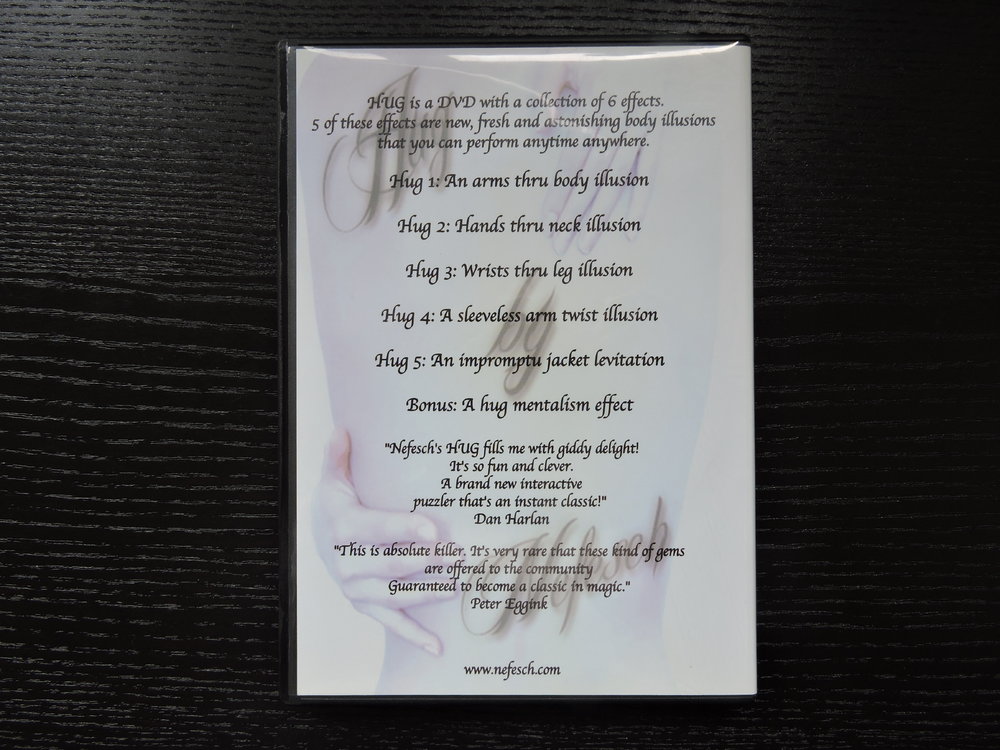 HUG is a DVD with a collection of 6 effects.
5 of these effects are new, fresh and astonishing body illusions
that you can perform anytime anywhere.
Hug 1: An arms thru body illusion
Hug 2: Hands thru neck illusion
Hug 3: Wrists thru leg illusion
Hug 4: A sleeveless arm twist illusion
Hug 5: An impromptu jacket levitation
Bonus: A hug mentalism effect
"Nefesch's HUG fills me with giddy delight!
It's so fun and clever.
A brand new interactive
puzzler that's an instant classic!"
Dan Harlan
"This is absolute killer. It's very rare that these kind of gems
are offered to the community
Guaranteed to become a classic in magic."
Peter Eggink
www.nefesch.com
Hug
by
Nefesch